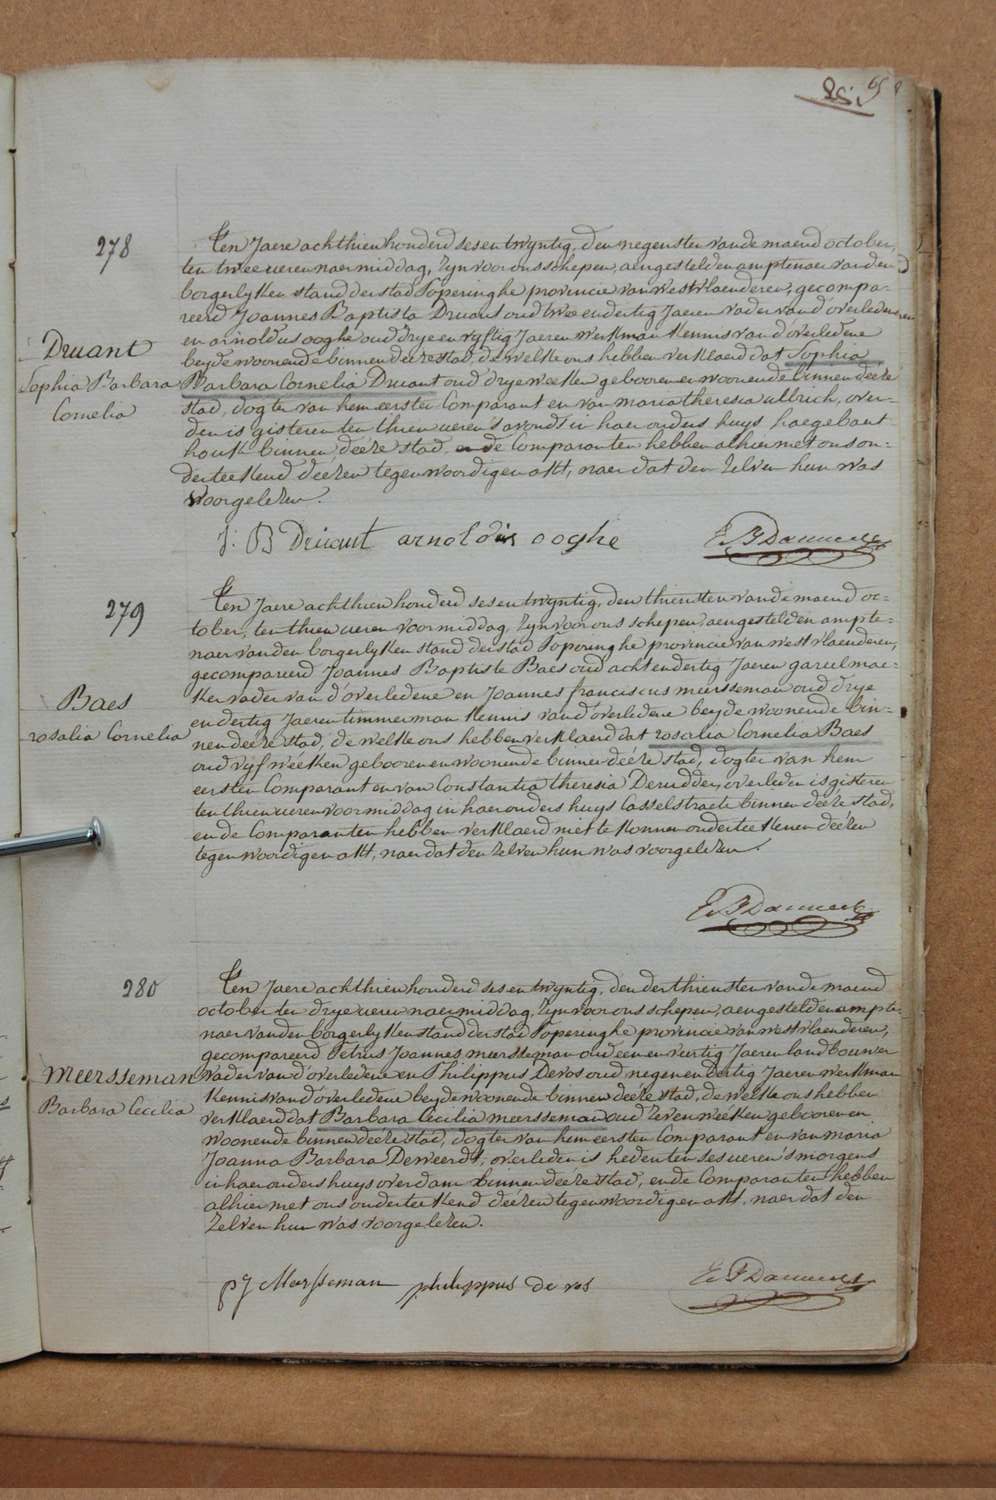 278
Druant
Sophia Barbara
Cornelia
Ten Jaere achthien honderd sesentwyntig, den negensten van de maend october,
ten twee ueren naermiddag, zyn voor ons schepen, aengestelden amptenaer van den
borgerlyken stand der stad Poperinghe provincie van westvlaenderen, gecompa-
reerd Joannes Baptista Druant oud twee en dertig Jaeren vader van d'overledene
en arnoldus ooghe oud drye en vyftig Jaeren werkman kennis van d'overledene
beyde woonende binnen deeze stad, de welke ons hebben verklaerd dat Sophia
Barbara Cornelia Druant oud drye weeken gebooren en woonende binnen deeze
stad, dogter van hem eersten Comparant en van maria theresia ullrich, over-
den is gisteren ten thien ueren s'avonds in haer ouders huys haegebaert
houk binnen deeze stad, en de Comparanten hebben alhier met ons on-
derteekend deezen tegenwoordigen akt, naer dat den zelven hun was
voorgelezen.
J: B Druant arnoldus ooghe
279
Baes
rosalia Cornelia
Ten Jaere achthien honderd sesentwyntig, den thiensten van de maend oc-
tober, ten thien ueren voormiddag, zyn voor ons schepen, aengestelden ampte-
naer van den borgerlyken stand der stad Poperinghe provincie van westvlaenderen,
gecompareerd Joannes Baptiste Baes oud acht en dertig Jaeren gareelmae-
ker vader van d'overledene en Joannes franciscus meersseman oud drye
en dertig Jaeren timmerman kennis van d'overledene beyde woonende bin-
nen deeze stad, de welke ons hebben verklaerd dat rosalia Cornelia Baes
oud vyf weéken gebooren en woonende binnen deéze stad, dogter van hem
eersten Comparant en van Constantia theresia Deruddere, overleden is gisteren
ten thien ueren voormiddag in haer ouders huys Casselstraete binnen deéze stad,
en de Comparanten hebben verklaerd niet te konnen onderteekenen deézen
tegenwoordigen akt, naer dat den zelven hun was voorgelezen.
280
Meersseman
Barbara Cecilia
Ten Jaere achthien honderd sesentwyntig, den derthiensten van de maend
october ten drye ueren naermiddag, zyn voor ons schepen, aengestelden ampte-
naer van den borgerlyken stand der stad Poperinghe provincie van westvlaenderen,
gecompareerd Petrus Joannes meersseman oud een en veertig Jaeren landbouwer
vader van d'overledene en Philippus Devos oud negen en dertig Jaeren werkman
kennis van d'overledene beyde woonende binnen deéze stad, de welke ons hebben
verklaerd dat Barbara Cecilia meersseman oud zeven weéken gebooren en
woonende binnen deéze stad, dogter van hem eersten Comparant en van maria
Joanna Barbara Deweerdt, overleden is heden ten ses ueren s'morgens
in haer ouders huys overdam binnen deéze stad, en de Comparanten hebben
alhier met ons onderteekend deézen tegenwoordigen akt, naer dat den
zelven hun was voorgelezen.
pj Meersseman philippus de vos